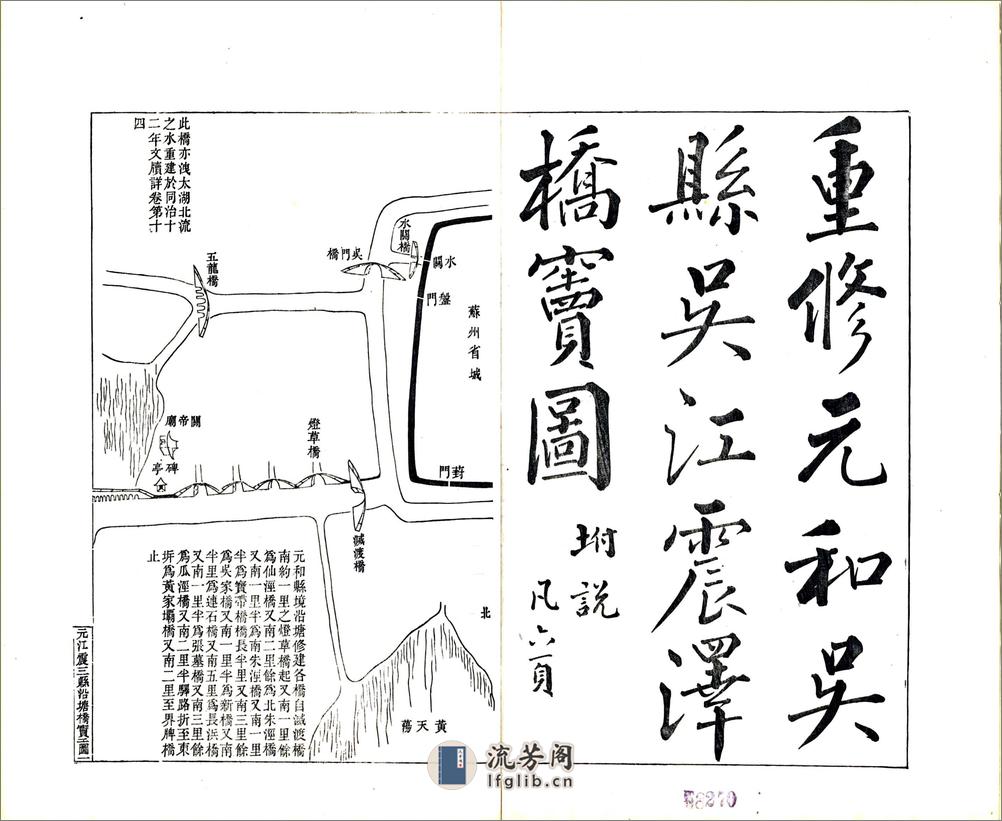 重修元和吳
縣吳江震澤
橋竇圖
坿說
凡六頁
此橋亦洩太湖北流
之水重建於同治十
二年文牘詳卷第十
四
水關橋
吳門橋
水關
盤門
蘇州省城
五龍橋
關帝廟
碑亭
燈草橋
葑門
滅渡橋
北
黃天蕩
元和縣境沿塘修建各橋自滅渡橋
南約一里之燈草橋起又南一里餘
爲仙涇橋又南二里餘爲北朱涇橋
又南一里半爲南朱涇橋又南一里
半爲寶帶橋橋長半里又南三里餘
爲吳家橋又南一里半爲新橋又南
半里爲連石橋又南五里爲長浜橋
又南一里半爲張墓橋又南三里餘
爲瓜涇橋又南二里半驛路折至東
坼爲黃家壩橋又南二里至界牌橋
止
元江震三縣沿塘橋竇圖一
流芳阁
lfglib.cn
270